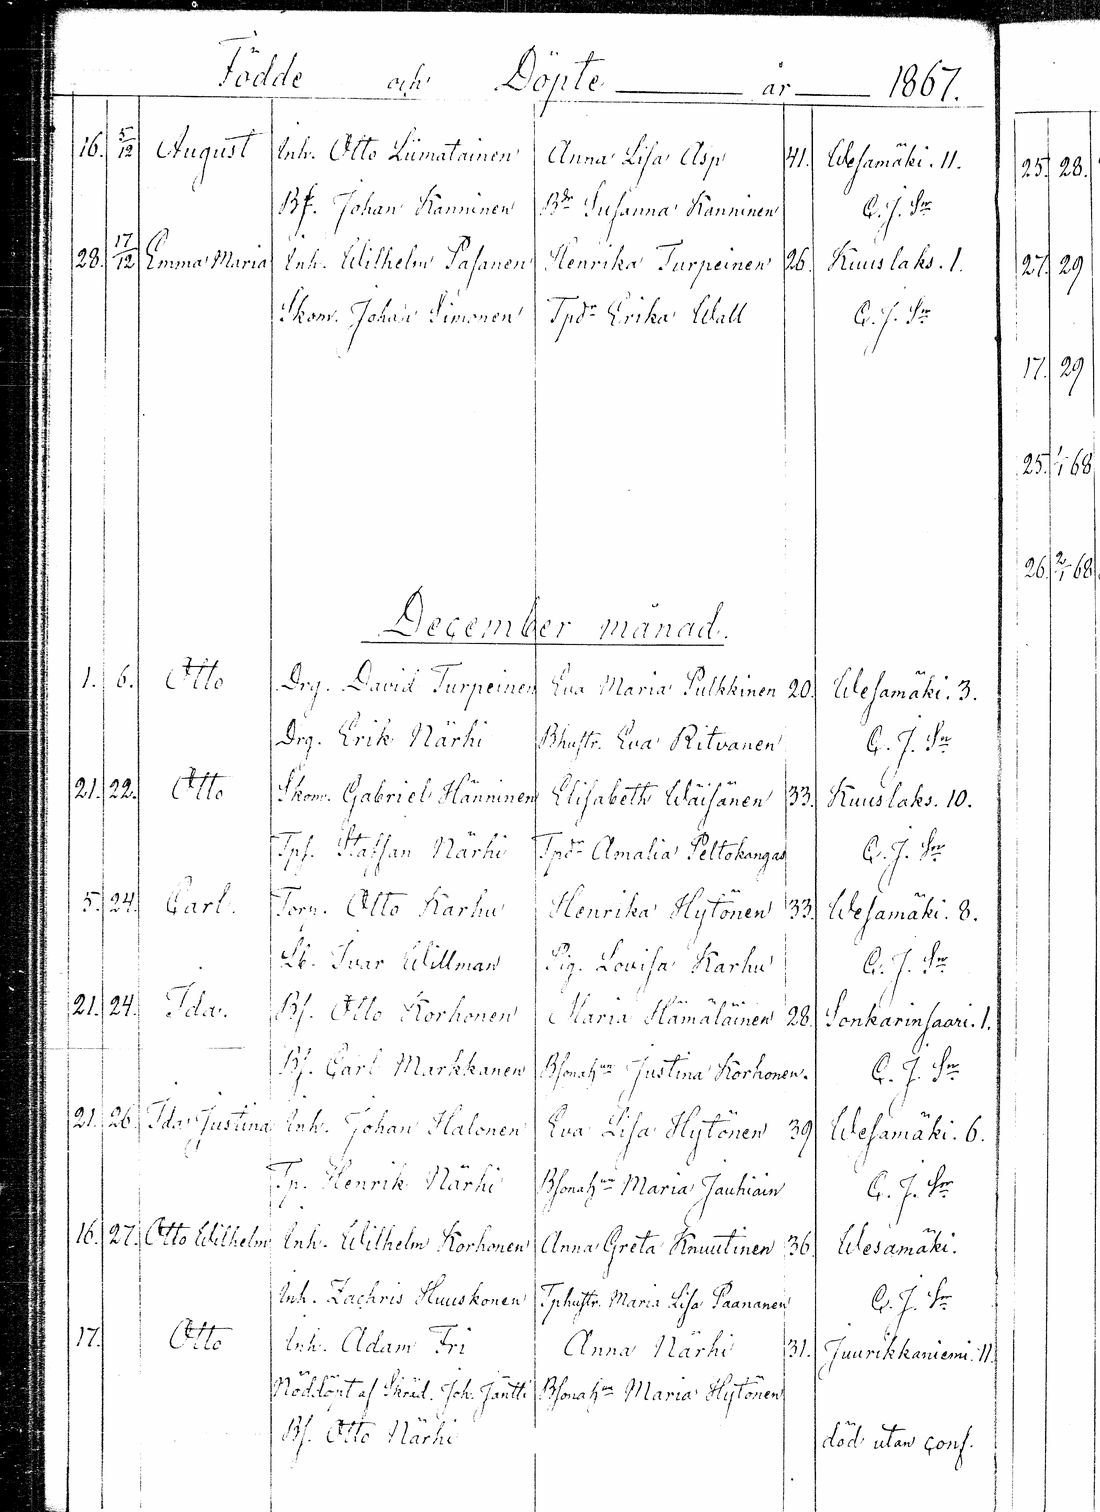 Födde och Döpte år 1867.
16. 5/12 August Inh. Otto Liimatainen Anna Lisa Asp 41. Wesamäki. 11.
Bf. Johan Kanninen Bdr Susanna Kanninen C. J. Sm
28. 17/12 Emma Maria Inh. Wilhelm Pasanen Henrika Turpeinen 26. Kuuslaks. 1.
Skom. Johan Simonen Tpdr Erika Wall C. J. Sm
December månad.
1. 6. Otto Drg. David Turpeinen Eva Maria Pulkkinen 20. Wesamäki. 3.
Drg. Erik Närhi Bhustr. Eva Ritvanen C. J. Sm
21. 22. Otto Skom. Gabriel Hänninen Elisabeth Wäisänen 33. Kuuslaks. 10.
Tps. Staffan Närhi Tpdr Amalia Peltokangas C. J. Sm
5. 24. Carl. Torp. Otto Karhu Henrika Hytönen 33. Wesamäki. 8.
Ivar Willman Pig. Lovisa Karhu C. J. Sm
21. 24. Ida. Bs. Otto Korhonen Maria Hämäläinen 28. Sonkarinsaari. 1.
Bs. Carl Markkanen Justina Korhonen. C. J. Sm
21. 26. Ida Justina Inh. Johan Halonen Eva Lisa Hytönen 39 Wesamäki. 6.
Tp. Henrik Närhi Maria Jauhiain C. J. Sm
16. 27. Otto Wilhelm Inh. Wilhelm Korhonen Anna Greta Knuutinen 36. Wesamäki.
Inh. Zachris Huuskonen Tphustr. Maria Lisa Paananen C. J. Sm
17. Otto Inh. Adam Fri Anna Närhi 31. Juurikkaniemi. 11.
Nöddöpt af Skräd. Joh. Jäntti Maria Hytönen
Bs. Otto Närhi död utan conf.
25. 28.
27. 29
17. 29
25. 1/1 68
26. 2/1 68